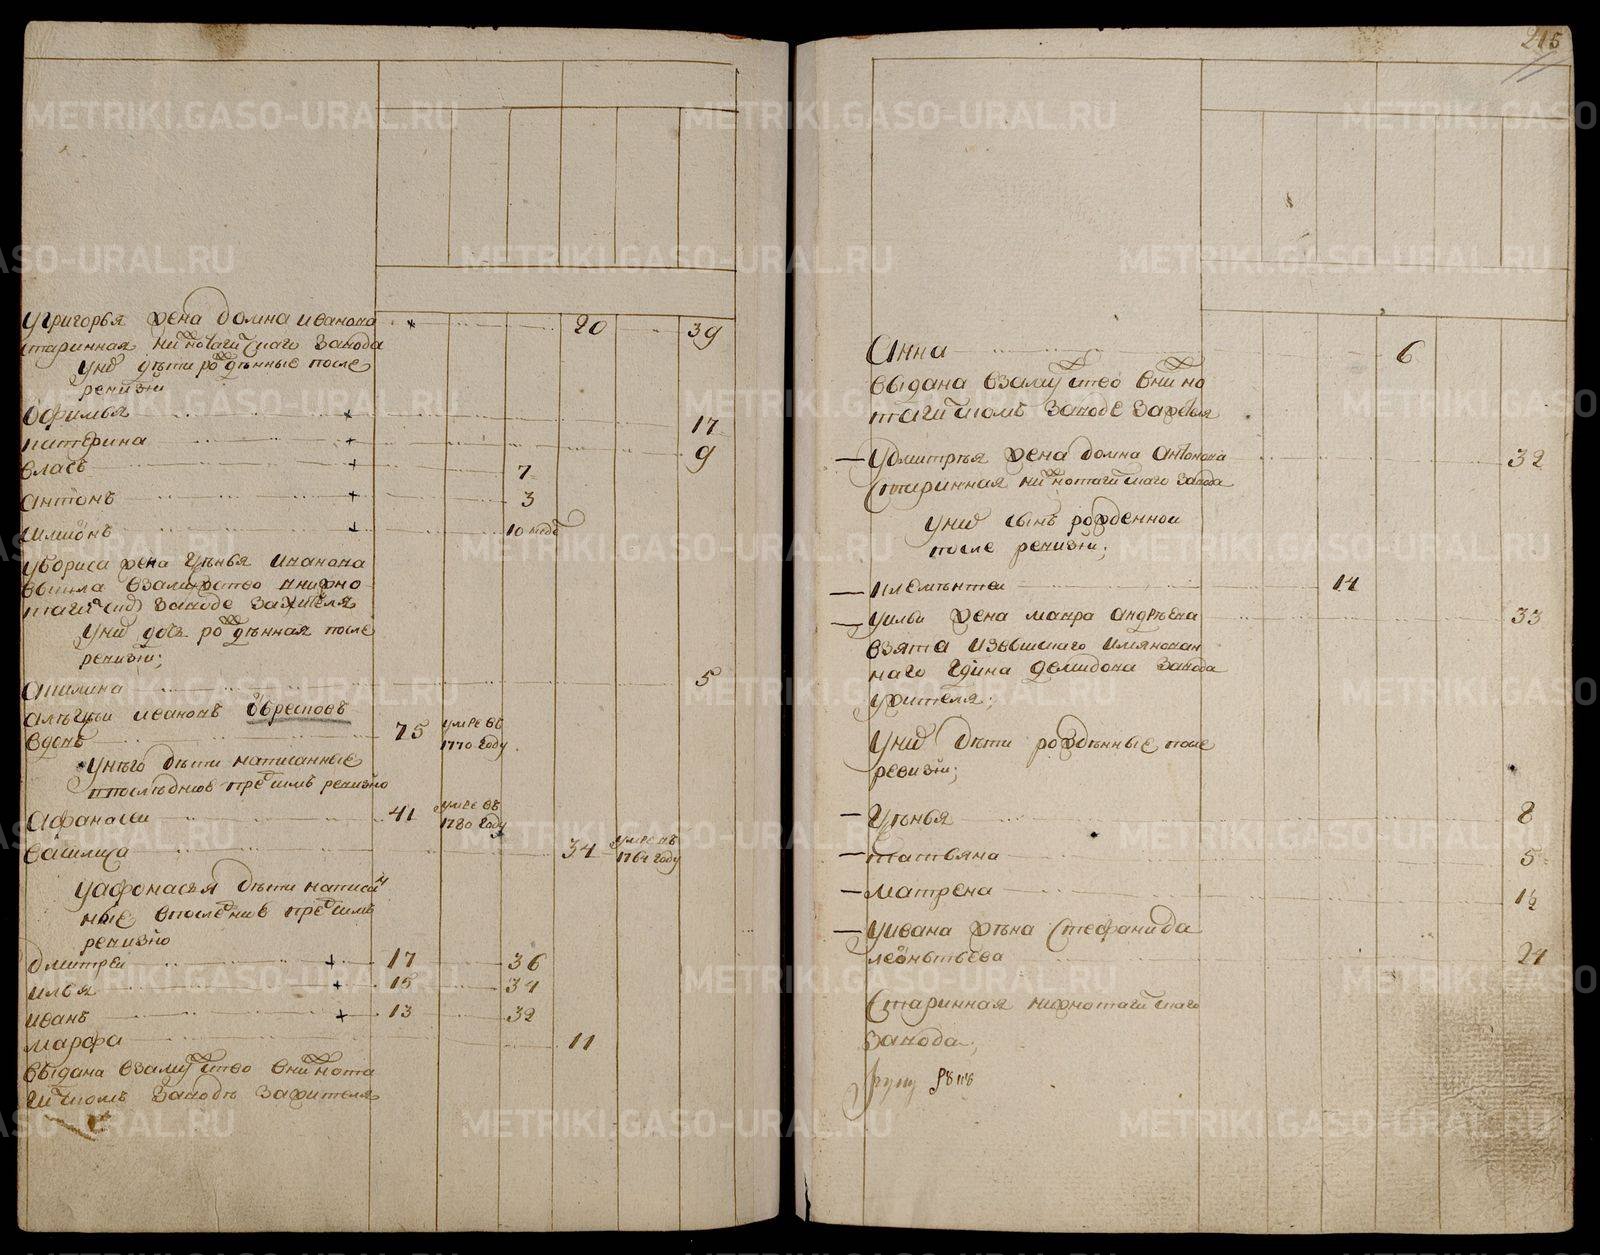 215
Угригорья жена домна иванова 20 39
старинная нижнотагилскаго завода
Уних дѣти рожденные после
ревизии
Офимья 17
катерина 9
власъ 7
антонъ 3
симионъ
Убориса жена иванова
вышла взамужство внижно
тагилском заводе зажителя
Уних дочь рожденная после
ревизии;
акилина 5
алѣксѣи ивановъ
вдовъ 75 умре въ
1770 году
Унего дѣти написанные
впоследнюю пред симъ ревизию
Афанасеи 41 умре въ
1780 году
василиса 34 умре въ
году
Уафонасья дѣти написан
ные впоследнюю пред симъ
ревизию
дмитреи 17 36
илья 15 34
иванъ 13 32
марфа 11
выдана взамужство внижнота
гилскомъ заводѣ зажителя
Анна 6
выдана взамужство внижно
тагилскомъ заводе зажителя
Удмитрѣя жена домна антонова 32
старинная нижнотагилскаго завода
Уних сынъ рожденной
после ревизии;
климѣнтеи 14
Уильи жена мавра андрѣева 33
взята
наго гдина демидова завода
Ужителя;
Уних дѣти рождѣнные после
ревизии;
Улѣнья 8
татьяна 5
матрена 1½
Уивана жѣна стефанида
леоньтьева 24
Старинная нижнотагилскаго
завода;
METRIKI.GASO-URAL.RU